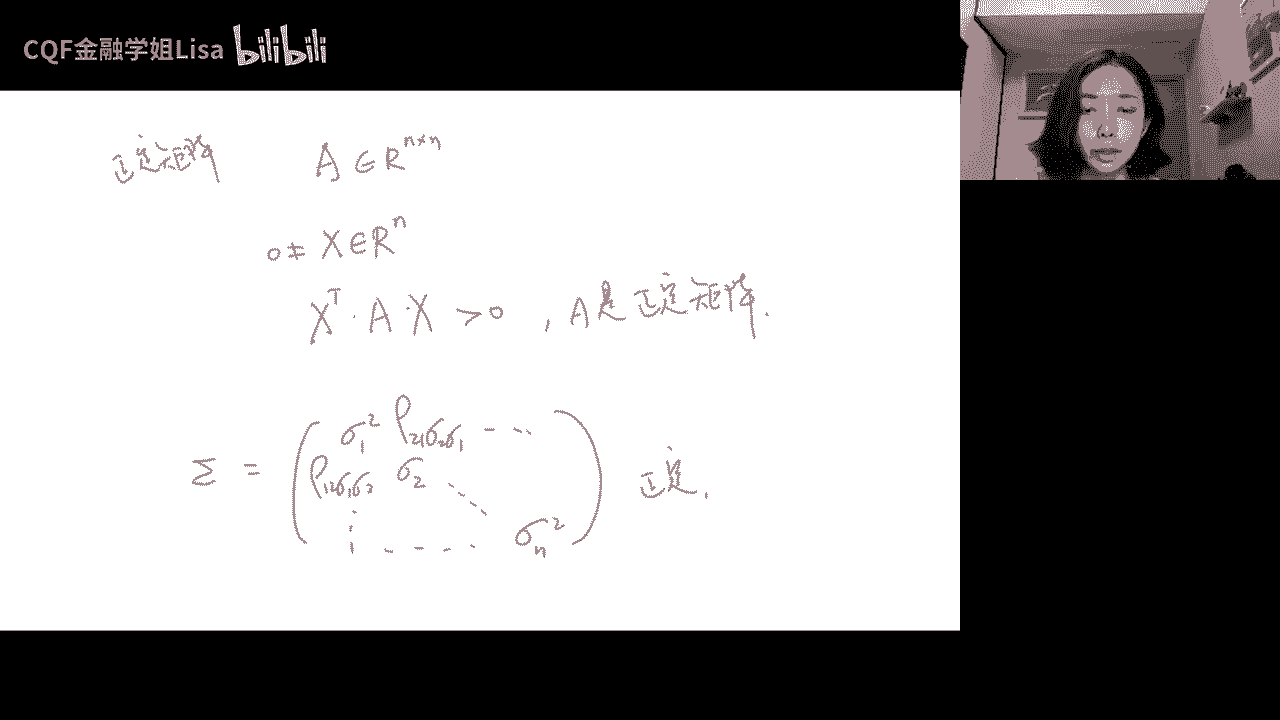 CQF金融学姐Lisa bilibili
正定矩阵 A ∈ R^{n×n}
0 ≠ X ∈ R^n
X^T · A · X > 0 , A是正定矩阵.
Σ = ( σ_1^2 ρ_{21}σ_2σ_1 - - -
ρ_{12}σ_1σ_2 σ_2 正定.
σ_n^2 )